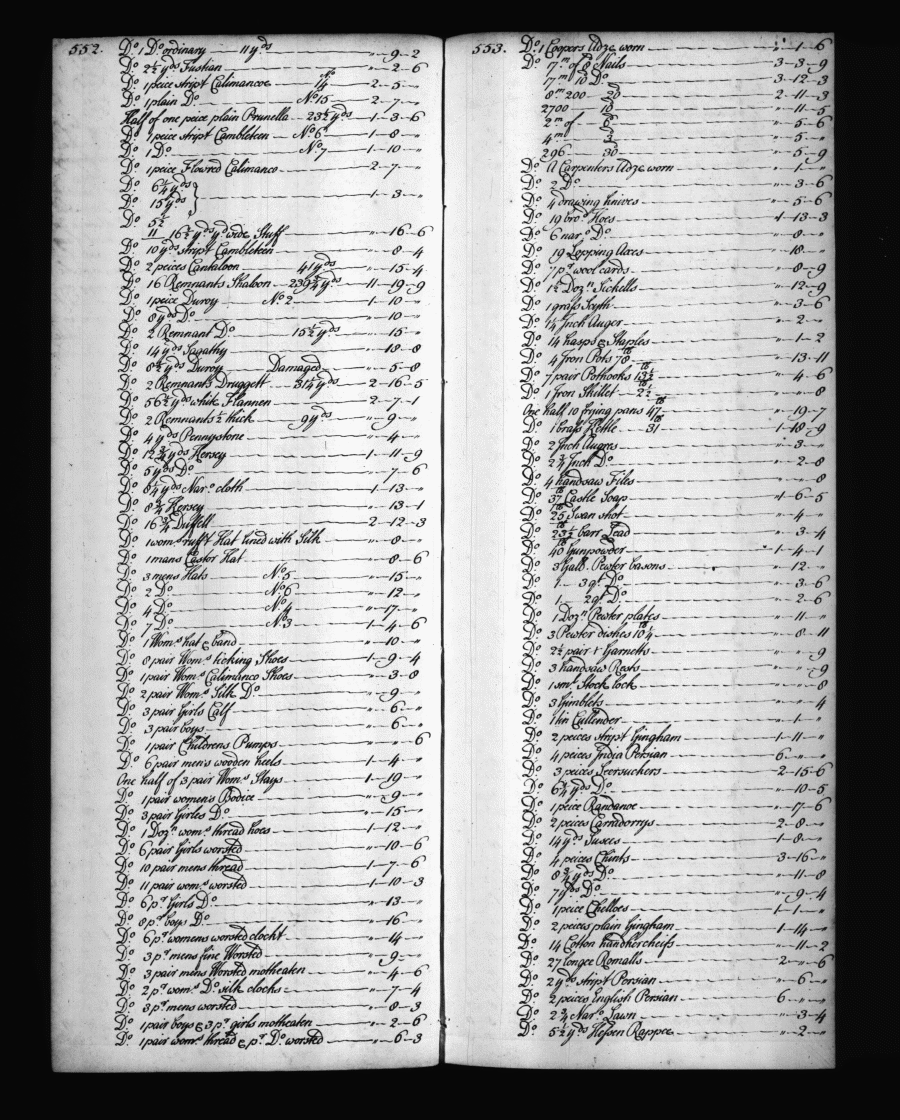 552.
Do. 1 Do. ordinary 11 yds " 9 2
Do. 2½ yds Fustian " 2 6
Do. 1 peice stript Calimancoe No. 14 2 5 "
Do. 1 plain Do. No. 15 2 7 "
Half of one peice plain Prunella 23½ yds 1 3 6
Do. 1 peice stript Cambleteen No. 6 1 8 "
Do. 1 Do. No. 7 1 10 "
Do. 1 peice Flowred Calimanco 2 7 "
Do. 6¼ yds
Do. 15 yds } 1 3 "
Do. 5½
11 16½ yds yd wide Stuff " 16 6
Do. 10 yds stript Cambleteen " 8 4
Do. 2 peices Cantaloon 41 yds " 15 4
Do. 16 Remnants Shaloon 239¼ yds 11 19 9
Do. 1 peice Duroy No. 2 1 10 "
Do. 8 yds Do. " 10 "
Do. 2 Remnant Do. 15½ yds " 15 "
Do. 14 yds Sagathy " 18 8
Do. 8½ yds Duroy Damaged " 5 8
Do. 2 Remnants Druggett 31¼ yds 2 16 5
Do. 56½ yds white Flannen 2 7 1
Do. 2 Remnants ½ thick 9 yds " 9 "
Do. 4 yds Pennystone " 4 "
Do. 12¾ yds Kersey 1 11 9
Do. 5 yds Do. " 7 6
Do. 6¼ yds Naro. cloth 1 13 "
Do. 8¾ Kersey " 13 1
Do. 16¾ Duffell 2 12 3
Do. 1 wom. rufft Hat lined with Silk " 8 "
Do. 1 mans Castor Hat " 8 6
Do. 3 mens Hats No. 5 " 15 "
Do. 2 Do. No. 6 " 12 "
Do. 4 Do. No. 4 " 17 "
Do. 7 Do. No. 3 1 4 6
Do. 1 Wom.s hat & band " 10 "
Do. 8 pair Wom.s ticking Shoes 1 9 4
Do. 1 pair Wom.s Calimanco Shoes " 3 8
Do. 2 pair Wom.s Silk Do. " 9 "
Do. 3 pair Girls Calf " 6 "
Do. 3 pair boys " 6 "
Do. 1 pair Childrens Pumps " " 6
Do. 6 pair men's wooden heels 1 4 "
One half of 3 pair Wom.s Stays 1 19 "
Do. 1 pair women's Bodice " 9 "
Do. 3 pair Girles Do. " 15 "
Do. 1 Dozn. wom.s thread hoes 1 12 "
Do. 6 pair Girls worsted " 10 6
Do. 10 pair mens thread 1 7 6
Do. 11 pair wom.s worsted 1 10 3
Do. 6 pr. Girls Do. " 13 "
Do. 8 pr. boys Do. " 16 "
Do. 6 pr. womens worsted clockt " 14 "
Do. 3 pr. mens fine Worsted " 9 "
Do. 3 pair mens Worsted motheaten " 4 6
Do. 2 pr. wom.s Do. silk clocks " 7 4
Do. 3 pr. mens worsted " 8 3
Do. 1 pair boys & 3 pr. girls motheaten " 2 6
Do. 1 pair wom.s thread & pr. Do. worsted " 6 3
553.
Do. 1 Coopers Adze worn " 1 6
Do. 17m of 8 Nails 3 3 9
17m 10 Do. 3 12 3
8m 200 20 2 11 3
2700 10 " 11 5
2m of 6 " 5 6
4m 3 " 5 "
296 30 " 5 9
Do. A Carpenters Adze worn " 1 "
Do. 2 Do. " 3 6
Do. 4 drawing knives " 5 6
Do. 19 bro. Hoes 1 13 3
Do. 6 nar. Do. " 8 "
Do. 19 Lopping Axes " 18 "
Do. 7 pr. wool cards " 8 9
Do. 1½ Dozn. Sickells " 12 9
Do. 1 grass Scyth " 3 6
Do. 1¼ Inch Auger " 2 "
Do. 14 hasps & Staples " 1 2
Do. 4 Iron Pots 78 lb " 13 11
Do. 7 pair Pothooks 13½ lb " 4 6
Do. 1 Iron Skillet 2½ lb " " 8
One half 10 frying pans 47 lb " 19 7
Do. 1 brass Kettle 31 lb 1 18 9
Do. 2 Inch Augres " 3 "
Do. 2 ¾ Inch Do. " 2 8
Do. 4 handsaw Files " " 8
Do. 37 lb Castle Soap 1 6 5
Do. 25 lb Swan shot " 4 "
Do. 23½ lb barr Lead " 3 4
Do. 40 lb Gunpowder 1 4 1
Do. 3 Gall. Pewter basons " 12 "
Do. 1 3 qt. Do. " 3 6
Do. 1 2 qt. Do. " 2 6
Do. 1 Dozn. Pewter plates " 11 "
Do. 3 Pewter dishes 10¼ lb " 8 11
Do. 2½ pair Garnetts " " 9
Do. 3 handsaw Rests " " 9
Do. 1 sml. Stock lock " " 8
Do. 3 Gimblets " " 4
Do. 1 tin Cullender " 1 "
Do. 2 peices stript Gingham 1 11 "
Do. 4 peices India Persian 6 " "
Do. 3 peices Seersuckers 2 15 6
Do. 6¼ yds Do. " 10 5
Do. 1 peice Randanoe " 17 6
Do. 2 peices Carradorrys 2 8 "
Do. 14 yds Susees 1 8 "
Do. 4 peices Chints 3 16 "
Do. 8¾ yds Do. " 11 8
Do. 7 yds Do. " 9 4
Do. 1 peice Chelloes 1 1 "
Do. 2 peices plain Gingham 1 14 "
Do. 14 Cotton handkercheifs " 11 2
Do. 27 longee Romalls 2 " 6
Do. 2 yds stript Persian " 6 "
Do. 2 peices English Persian 6 " "
Do. 2¾ Naro. Lawn " 3 4
Do. 5½ yds Hessen Rappee " 2 "